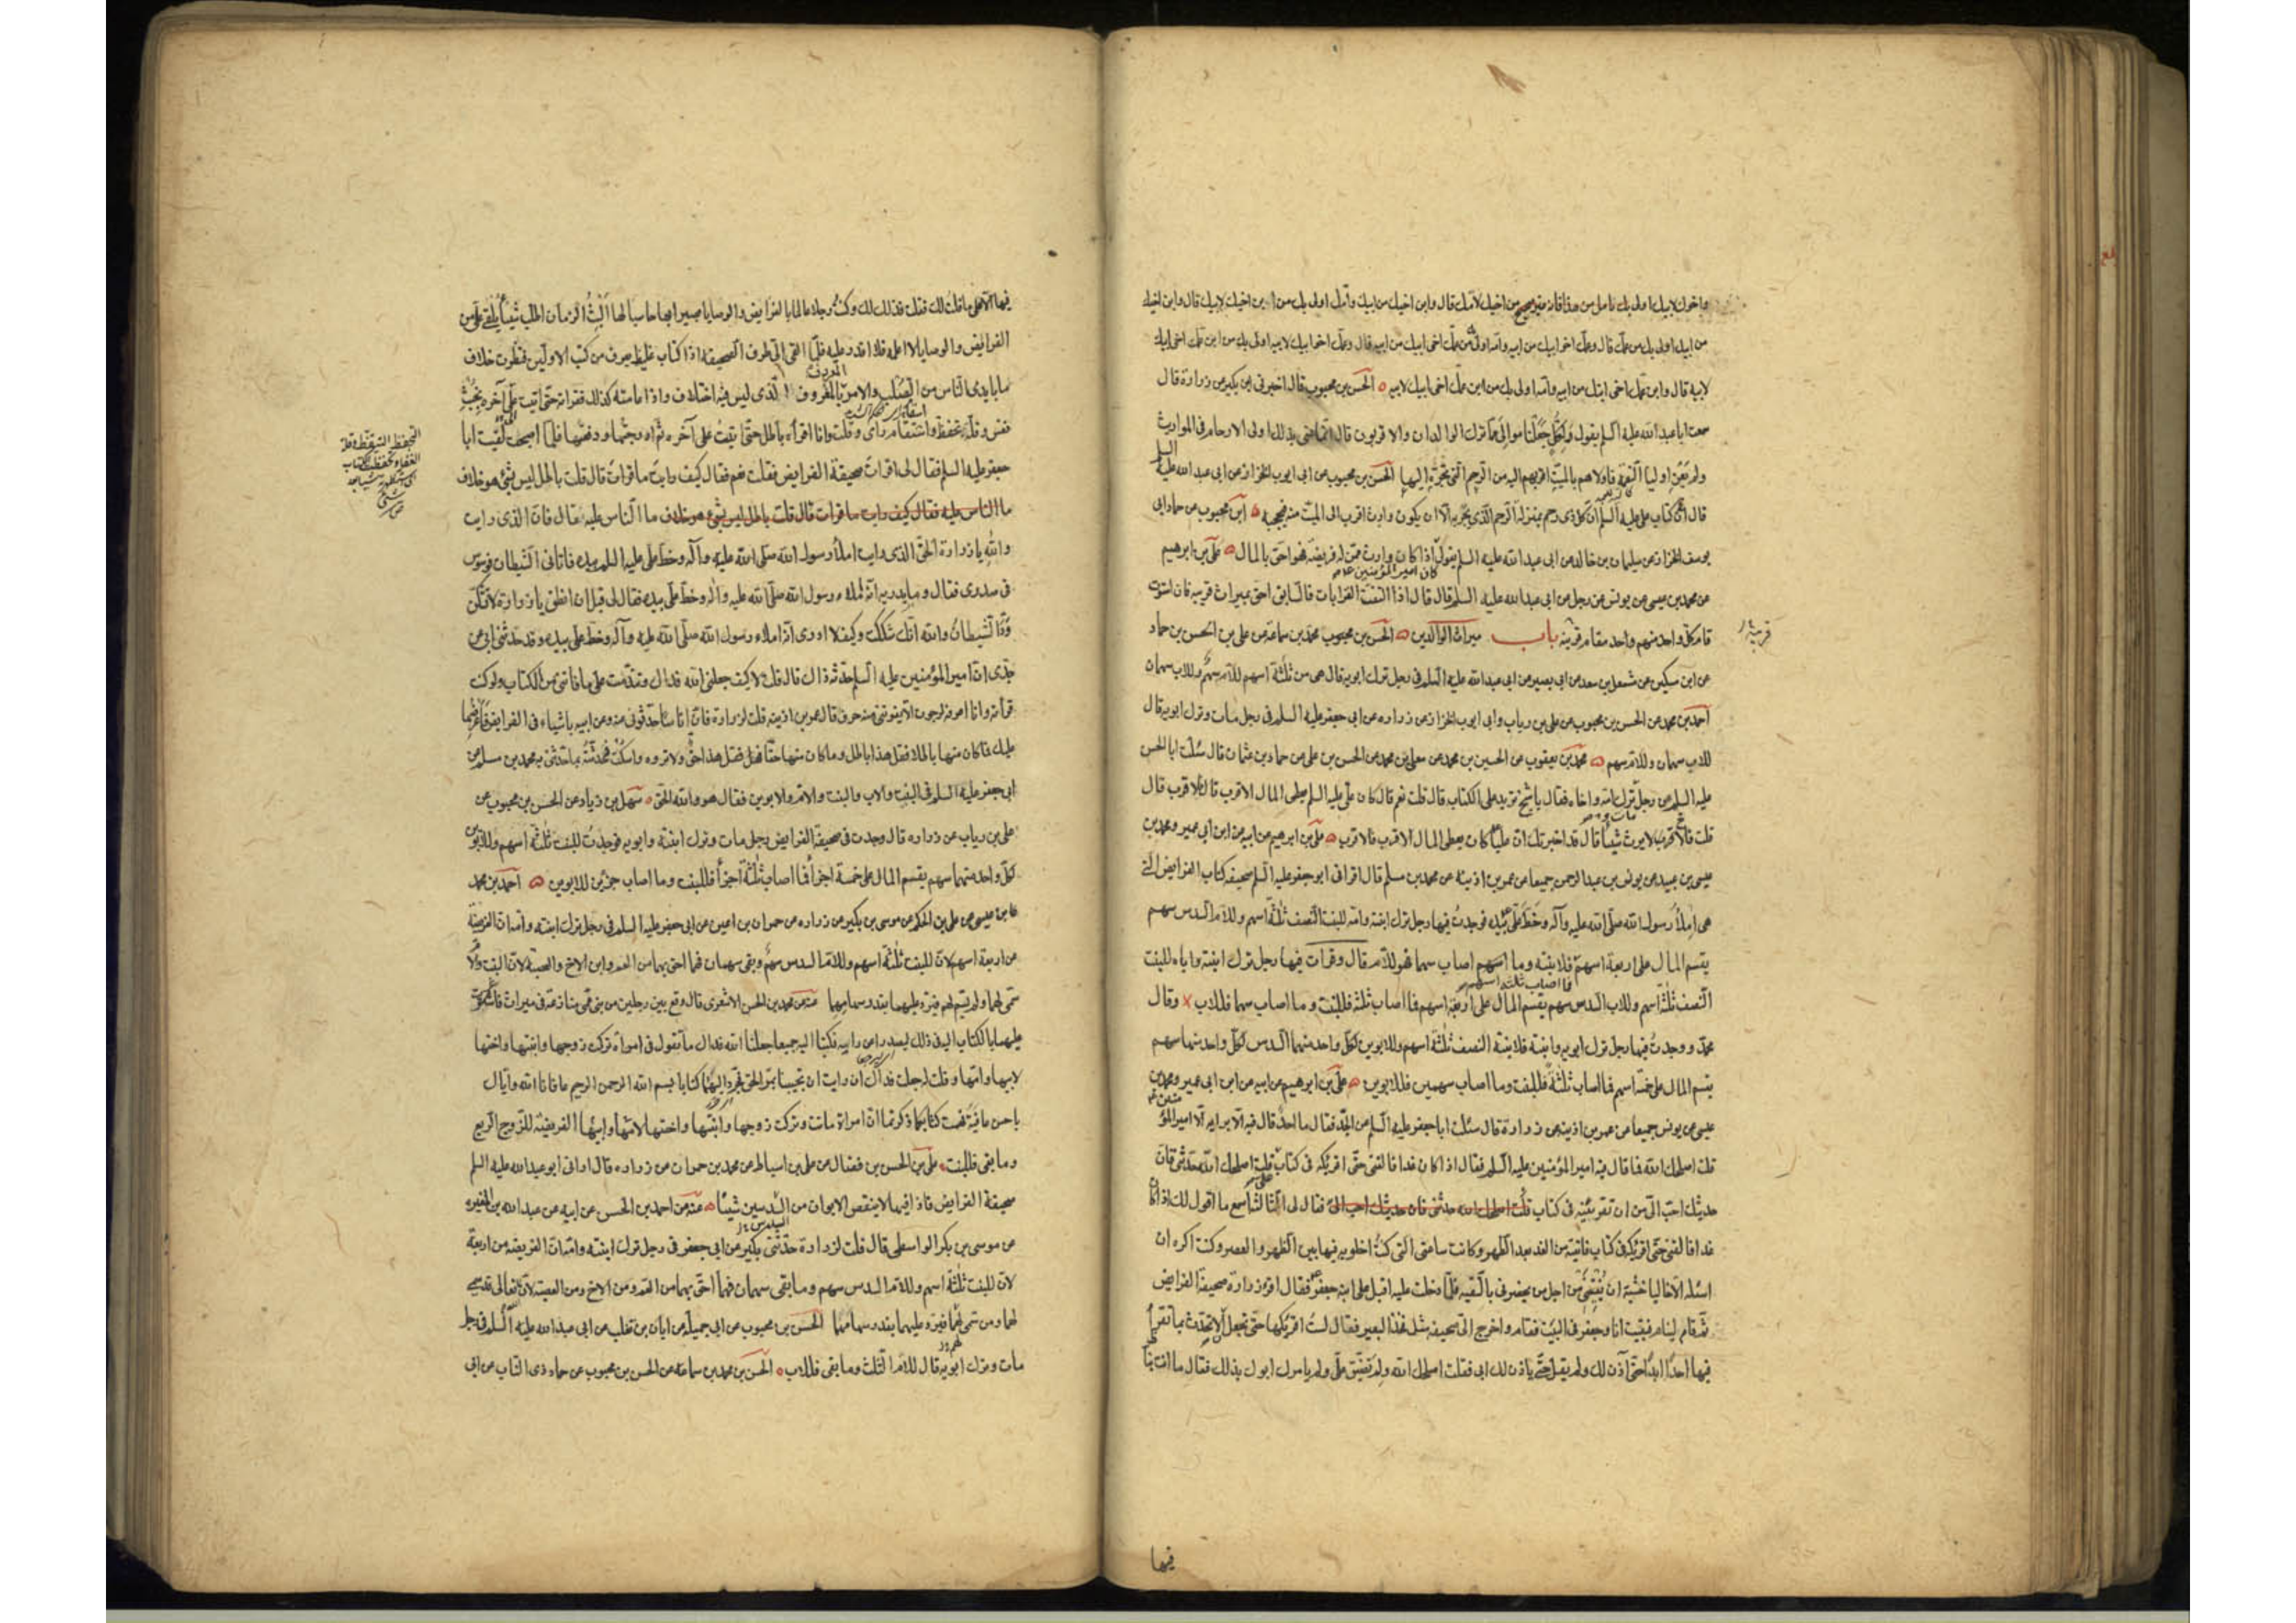 واخوك لابيك اولى بك من اخيك لامك قال وابن اخيك من ابيك وامك اولى بك من ابن اخيك لابيك قال وابن اخيك
من ابيك اولى بك من عمك قال وعمك اخو ابيك من ابيه وامه اولى بك من عمك اخى ابيك من ابيه قال وعمك اخو ابيك لابيه اولى بك من ابن عمك اخى ابيك
لابيه قال وابن عمك اخى ابيك من ابيه وامه اولى بك من ابن عمك اخى ابيك لابيه الحسن بن محبوب قال اخبرنى ابن بكير عن زرارة قال
سمعت ابا عبد الله عليه السلم يقول ولكل جعلنا موالى مما ترك الوالدان والاقربون قال انما عنى بذلك اولى الارحام فى المواريث
ولم يعن اوليا النعمة فاولاهم بالميت اقربهم اليه من الرحم التى تجره اليها الحسن بن محبوب عن ابى ايوب الخزاز عن ابى عبد الله عليه السلم
قال ان فى كتاب على عليه السلم ان كل ذى رحم بمنزلة الرحم الذى يجر به الا ان يكون وارث اقرب الى الميت منه فيحجبه ابن محبوب عن حماد ابى
يوسف الخزاز عن سليمان بن خالد عن ابى عبد الله عليه السلم قال كان امير المؤمنين ع يقول اذا كان وارث ممن له فريضة فهو احق بالمال على بن ابرهيم
عن محمد بن عيسى عن يونس عن رجل عن ابى عبد الله عليه السلم قال قال اذا التفت القرابات فالسابق احق بميراث قريبه فان استوت
قام كل واحد منهم واحد مقام قريبه باب ميراث الوالدين الحسن بن محبوب محمد بن سماعة عن على بن الحسن بن حماد
قريبه
عن ابن سكين عن مشمعل بن سعد عن ابى بصير عن ابى عبد الله عليه السلم فى رجل ترك ابويه قال هى من ثلثة اسهم للام سهم وللاب سهمان
احمد بن محمد عن الحسن بن محبوب عن على بن رياب وابى ايوب الخزاز عن زراره عن ابى جعفر عليه السلم فى رجل مات وترك ابويه قال
للاب سهمان وللام سهم محمد بن يعقوب عن الحسين بن محمد عن معلى بن محمد عن الحسن بن على عن حماد بن عثمان قال سئلت ابا الحسن
عليه السلم عن رجل ترك امه واخاه فقال يا شيخ تريد على الكتاب قال قلت نعم قال كان على عليه السلم يعطى المال الاقرب فالاقرب قال
قلت فالاخ لا يرث شيئا قال قد اخبرتك ان عليا كان يعطى المال الاقرب فالاقرب على بن ابرهيم عن ابيه عن ابن ابى عمير ومحمد بن
عيسى بن عبيد عن يونس بن عبد الرحمن جميعا عن عمر بن اذينه عن محمد بن مسلم قال اقرانى ابو جعفر عليه السلم صحيفه كتاب الفرايض التى
هى املاء رسول الله صلى الله عليه وآله وخط على بيده فوجدت فيها رجل ترك ابنته وامه للبنت النصف ثلثة اسهم وللام السدس سهم
يقسم المال على اربعة اسهم فما اصاب ثلثة اسهم فلابنته وما اصاب سهما فهو للام قال وقرات فيها رجل ترك ابنته واباه للبنت
النصف ثلثة اسهم وللاب السدس سهم يقسم المال على اربعة اسهم فما اصاب ثلثة فللبنت وما اصاب سهما فللاب وقال
محمد ووجدت فيها رجل ترك ابويه وابنته فلابنته النصف ثلثة اسهم وللابوين لكل واحد منهما السدس لكل واحد منهما سهم
يقسم المال على خمسة اسهم فما اصاب ثلثة فللبنت وما اصاب سهمين فللابوين على بن ابرهيم عن ابيه عن ابن ابى عمير ومحمد بن
عيسى عن يونس جميعا عن عمر بن اذينه عن زرارة قال سئلت ابا جعفر عليه السلم عن الجد فقال ما احد قال فيه الا برايه الا امير المؤمنين ع
قلت اصلحك الله فما قال فيه امير المؤمنين عليه السلم فقال اذا كان غدا فالقنى حتى اقرئكه فى كتاب قلت اصلحك الله حدثنى فان
حديثك احب الى من ان تقرئنيه فى كتاب فقال لى الثالثة اسمع ما اقول لك اذا كان
غدا فالقنى حتى اقرئكه فى كتاب فاتيته من الغد بعد الظهر وكانت ساعتى التى كنت اخلو به فيها بين الظهر والعصر وكنت اكره ان
اسئله الا خاليا خشية ان يفتينى من اجل من يحضرنى بالتقيه فلما دخلت عليه اقبل على ابنه جعفر فقال اقرئ زرارة صحيفة الفرايض
ثم قام لينام فبقيت انا وجعفر فى البيت فقام واخرج الى صحيفه مثل فخذ البعير فقال لست اقرئكها حتى تجعل لى الا تحدث بما تقرأ
فيها احدا ابدا حتى آذن لك ولم يقل حتى ياذن لك ابى فقلت اصلحك الله ولم تضيق على ولم يامرك ابوك بذلك فقال ما انت بناظر
فيها
فيها الا على ما قلت لك فقلت فذلك لك وكنت رجلا عالما بالفرايض والوصايا بصيرا بها حاسبا لها البث الزمان اطلب شيئا يلقى على من
الفرايض والوصايا لا اعلمه فلا اقدر عليه فلما القى الى طرف الصحيفه اذا كتاب غليظ يعرف من كتب الاولين فنظرت خلاف
ما بايدى الناس من الصلب والامر بالمعروف الذى ليس فيه اختلاف واذا عامته كذلك فقراته حتى اتيت على آخره بخبث
نفس وقلة تحفظ واسقام راى وقلت وانا اقرأه باطل حتى اتيت على آخره ثم ادرجتها ودفعتها فلما اصبحت لقيت ابا
التحفظ التيقظ وقلة
الغفلة وتحفظت الكتاب
اى استظهرته شيئا بعد
شئ
جعفر عليه السلم فقال لى اقرات صحيفة الفرايض فقلت نعم فقال كيف رايت ما قرات قال قلت باطل ليس بشئ هو خلاف
ما الناس عليه فقال كيف رايت ما قرات قال قلت باطل ليس بشئ هو خلاف ما الناس عليه قال فان الذى رايت
والله يا زرارة الحق الذى رايت املاء رسول الله صلى الله عليه وآله وخط على عليه السلم بيده فاتانى الشيطان فوسوس
فى صدرى فقال وما يدريه انه املاء رسول الله صلى الله عليه وآله وخط على بيده فقال لى قبل ان انطق يا زرارة لا تشكن
ود الشيطان والله انك شككت وكيف لا ادرى انه املاء رسول الله صلى الله عليه وآله وخط على بيده وقد حدثنى ابى عن
جدى ان امير المؤمنين عليه السلم حدثه ذاك قال قلت لا كيف جعلنى الله فداك وتندمت على ما فاتنى من الكتاب ولو كنت
قرأته وانا اعرفه لرجوت الا يفوتنى منه حرف قال عمر بن اذينه قلت لزرارة فان اناسا حدثونى عنه وعن ابيه باشياء فى الفرايض فاعرضها
عليك فما كان منها باطلا فقل هذا باطل وما كان منها حقا فقل هذا حق ولا تروه واسكت فحدثته بما حدثنى به محمد بن مسلم عن
ابى جعفر عليه السلم فى البنت والاب والبنت والام والابوين فقال هو والله الحق سهل بن زياد عن الحسن بن محبوب عن
على بن رياب عن زراره قال وجدت فى صحيفة الفرايض رجل مات وترك ابنته وابويه فوجدت للبنت ثلثة اسهم وللابوين
لكل واحد منهما سهم يقسم المال على خمسة اجزاء فما اصاب ثلثة اجزاء فللبنت وما اصاب جزئين للابوين احمد بن محمد
عن عيسى عن على بن الحكم عن موسى بن بكير عن زراره عن حمران بن اعين عن ابى جعفر عليه السلم فى رجل ترك ابنته وامه ان الفريضة
من اربعة اسهم لان للبنت ثلثة اسهم وللام السدس سهم وبقى سهمان فهما احق بهما من العم وابن الاخ والعصبة لان البنت والام
سمى لهما ولم يسم لهم فيرد عليهما بقدر سهامهما عنه عن محمد بن الحسن الاشعرى قال وقع بين رجلين من بنى عمى منازعة فى ميراث فاشرت
عليهما بالكتاب اليه فى ذلك ليصدرا عن رايه فكتبا اليه جميعا جعلنا الله فداك ما تقول فى امرأة تركت زوجها وابنتها واختها
لابيها وامها وقلت له جعلت فداك ان رايت ان تجيبنا بمر الحق فخرج اليهما كتابا بسم الله الرحمن الرحيم عافانا الله واياك
باحسن عافية فهمت كتابكما ذكرتما ان امراة ماتت وتركت زوجها وابنتها واختها لامها وابيها الفريضة للزوج الربع
وما بقى فللبنت على بن الحسن بن فضال عن على بن اسباط عن محمد بن حمران عن زراره قال ارانى ابو عبد الله عليه السلم
صحيفة الفرايض فاذا فيها لا ينقص الابوان من السدسين شيئا عنه عن احمد بن الحسن عن ابيه عن عبد الله بن المغيره
عن موسى بن بكر الواسطى قال قلت لزرارة حدثنى بكير عن ابى جعفر فى رجل ترك ابنته وامه ان الفريضه من اربعة
لان للبنت ثلثة اسهم وللام السدس سهم وما بقى سهمان فهما احق بهما من العم ومن الاخ ومن العصبة لان الله تعالى قد سمى
لهما ومن سمى لهما فيرد عليهما بقدر سهامهما الحسن بن محبوب عن ابى جميلة عن ابان بن تغلب عن ابى عبد الله عليه السلم فى رجل
مات وترك ابويه قال للام الثلث وما بقى فللاب الحسن بن محمد بن سماعه عن الحسن بن محبوب عن حماد ذى الناب عن ابى